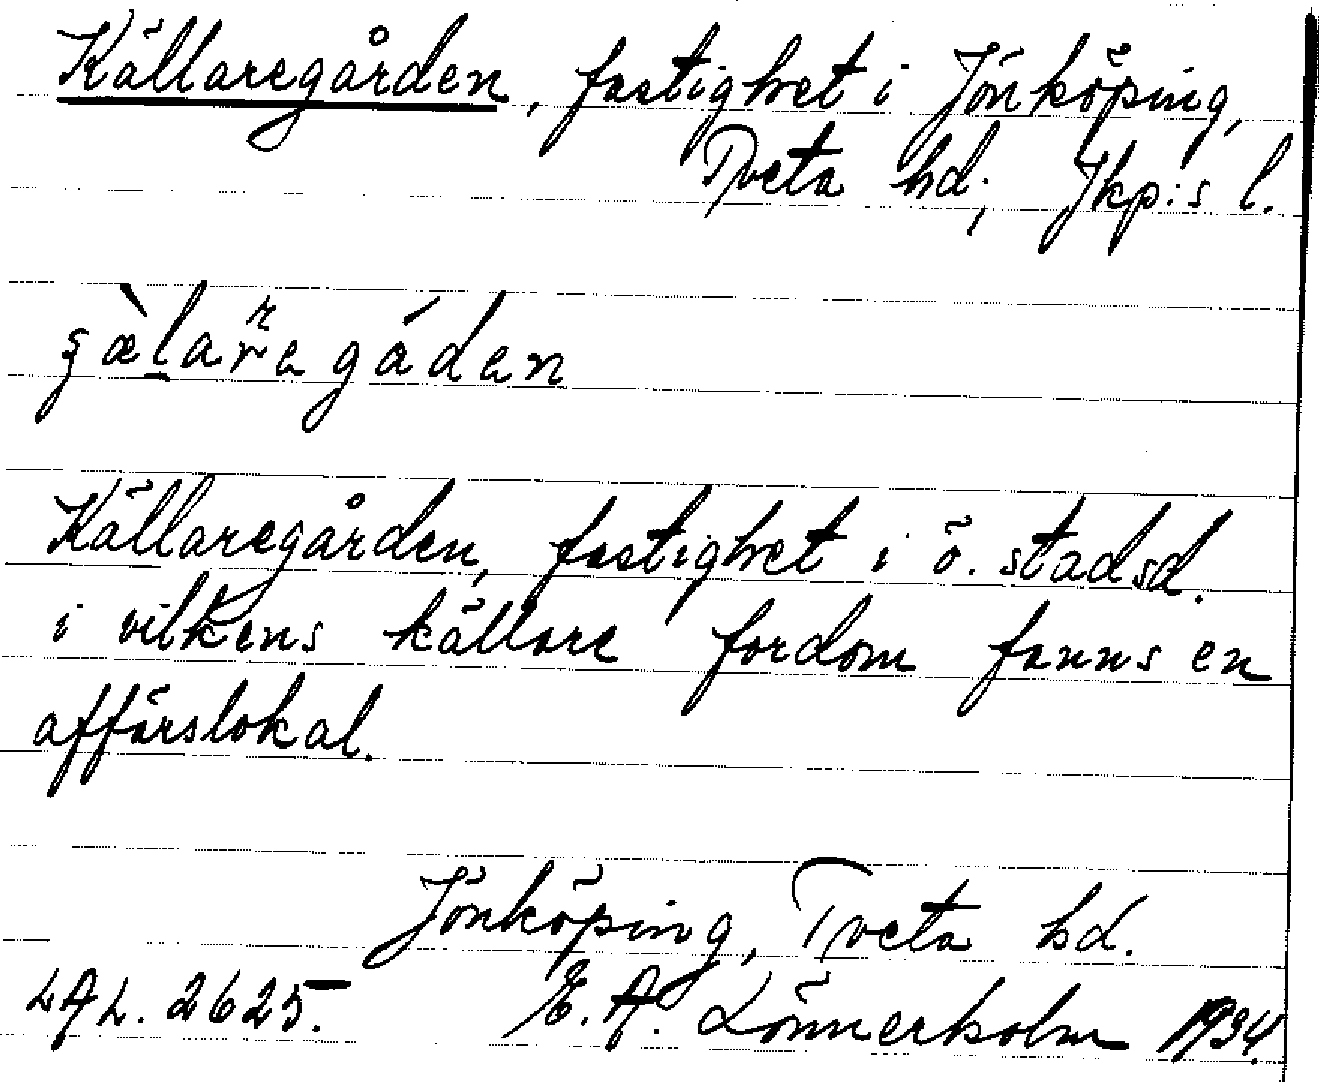 Källaregården, fastighet i Jönköping,
Tveta hd; Jkp:s l.
Källaregården, fastighet i ö. stadsd.
i vilkens källare fordom fanns en
affärslokal.
Jönköping, Tveta hd.
LAL. 2625. E. A. Lönnerholm 1934.